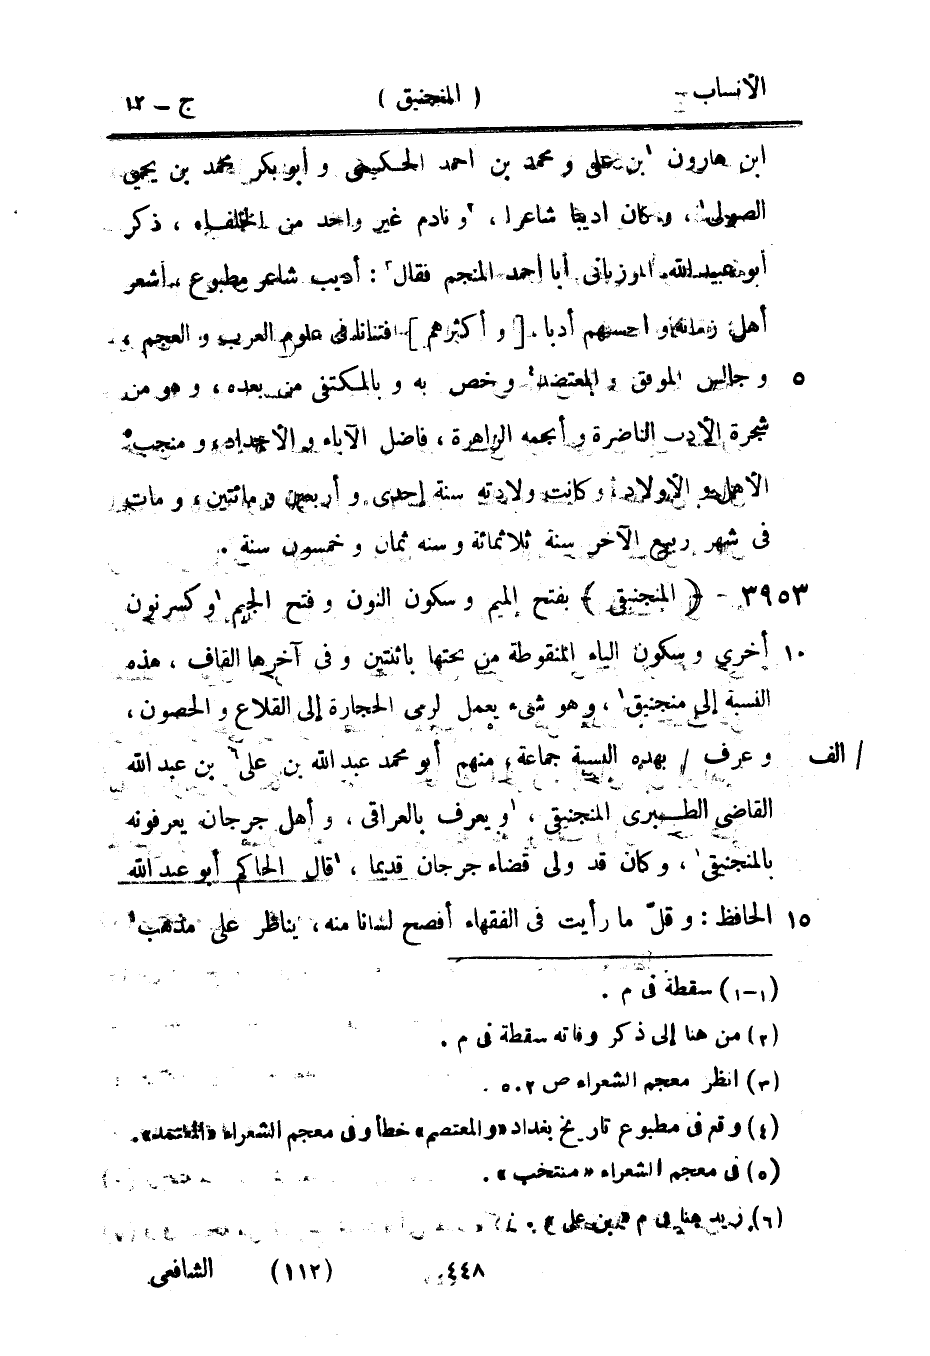 الأنساب - ( المنجنيق ) ج - ١٢
ابن هارون ١بن على و محمد بن احمد الحكيمى و أبو بكر محمد بن يحيى
الصولى١، و كان اديبا شاعرا، ٢و نادم غير واحد من الخلفاء، ذكر
أبو عبيد الله المرزبانى أبا أحمد المنجم فقال٣: أديب شاعر مطبوع، أشعر
أهل زمانه و احسنهم أدبا [ و أكثرهم ] افتنانا فى علوم العرب و العجم،
٥ و جالس الموفق و المعتضد٤ و خص به و بالمكتفى من بعده، و هو من
شجرة الأدب الناضرة و أنجمه الزاهرة، فاضل الآباء و الأجداد، و منجب٥
الأهل و الأولاد، و كانت ولادته سنة إحدى و أربعين و مائتين، و مات
فى شهر ربيع الآخر سنة ثلاثمائة و سنه ثمان و خمسون سنة .
٣٩٥٣ - ﴿ المنجنيقى ﴾ بفتح الميم و سكون النون و فتح الجيم ١و كسر نون
١٠ أخرى و سكون الياء المنقوطة من تحتها باثنتين و فى آخرها القاف، هذه
النسبة إلى منجنيق١، و هو شىء يعمل لرمى الحجارة إلى القلاع و الحصون،
/ الف و عرف / بهذه النسبة جماعة، منهم أبو محمد عبد الله بن على٦ بن عبد الله
القاضى الطبرى المنجنيقى، ١و يعرف بالعراقى، و أهل جرجان يعرفونه
بالمنجنيقى١، و كان قد ولى قضاء جرجان قديما، ١قال الحاكم أبو عبد الله
١٥ الحافظ: و قلّ ما رأيت فى الفقهاء أفصح لسانا منه، يناظر على مذهب١
(١-١) سقطة فى م .
(٢) من هنا إلى ذكر وفاته سقطة فى م .
(٣) انظر معجم الشعراء ص ٥٠٢ .
(٤) وقع فى مطبوع تاريخ بغداد «و المعتصم» خطأ و فى معجم الشعراء «المعتمد».
(٥) فى معجم الشعراء «منتخب» .
(٦) زيد هنا فى م «بن على» .
٤٤٨ (١١٢) الشافعى